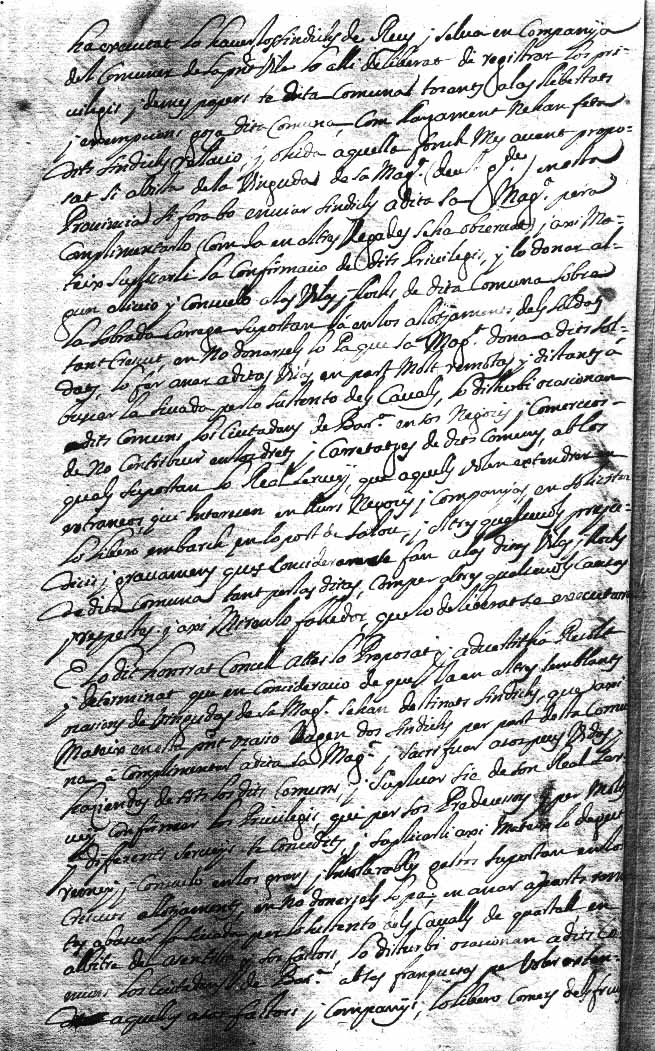 ha executat lo haverlos sindichs de Reus j selva en Companÿia
del Comuner de la pnt Vila lo alli deliberat de registrar los pri-
vilegis j demes papers te dita Comuna tocants a las llibertats
j exempcions goza dita Comuna Com llargament ne han feta
dits sindichs rellacio, j ohida aquella fonch Mes avant propo-
sat si atesa de la Vinguda de sa Mag.t (
Provincia si fora bo enviar sindichs a dita sa Mag.t pera
Complimentarlo (Com ja en altres Vegades se ha observat) j axi Ma-
teix suplicarli la Confirmacio de dits Privilegis, y lo donar al-
gun alivio y Consuelo a las Vilas j llochs de dita Comuna sobre
la sobrada Carrega suportan ja en los allotjaments dels soldats
tant Crescut en No donarsels lo Pa que sa Mag.t dona a dits sol-
dats, lo fer anar a ditas Vilas en part Molt remotas j distants á
buscar la sivada per lo sustento dels Cavalls, lo disturbi ocasionan
a dits Comuns los Ciutadans de Bar.na en los Negocis j Comercios
de No Contribuir en los drets j Carretatges de dits Comuns, ab los
quals suportan lo Real servey, que aquells volen extendrer en
extrangeos qui interessen en llurs Negocis j Companÿias, en
lo libero embarch en lo port de Salou, j altres qualsevols preju-
dicis j gravamens ques Consideraran se fan a las ditas Vilas j llochs
de dita Comuna tant per las ditas, Com per altres qualsevols Causas
j respectes. j axi Miren lo fahedor, que lo deliberat se executara
E lo dit honrrat Concell attes lo Proposat j advertit ha Resolt
j determinat que en Consideracio de que ja en altres semblants
ocasions de Vingudas de sa Mag.t se han destinats sindichs, que axi
Mateix en esta pnt ocasio Vagen dos sindichs per part de sta Comu
na a Complimentar a dita sa Mag.t j sacrificar a sos peus Vidas j
haziendas de tots los dits Comuns, j suplicar sie de son Real ser
vey Confirmar los Privilegis, que per sos Predecessors j per Molts
j differents serveys te Concedits, j suplicarli axi Mateix lo degut
remey j Consuelo en los greus j intolerables gastos suportan en los
Crescuts allotjaments, en No donarsels lo pa, en anar a parts remo
tas a buscar la sivada per lo sustento dels Cavalls de quartell en
albitre del Asentista y sos factors, lo disturbi ocasionan a dits Co
muns los Ciutadans de Bar.na ab las franquesas per Voler exten-
dir aquellas a sos factors j Companÿs; lo libero Comers dels fruyts